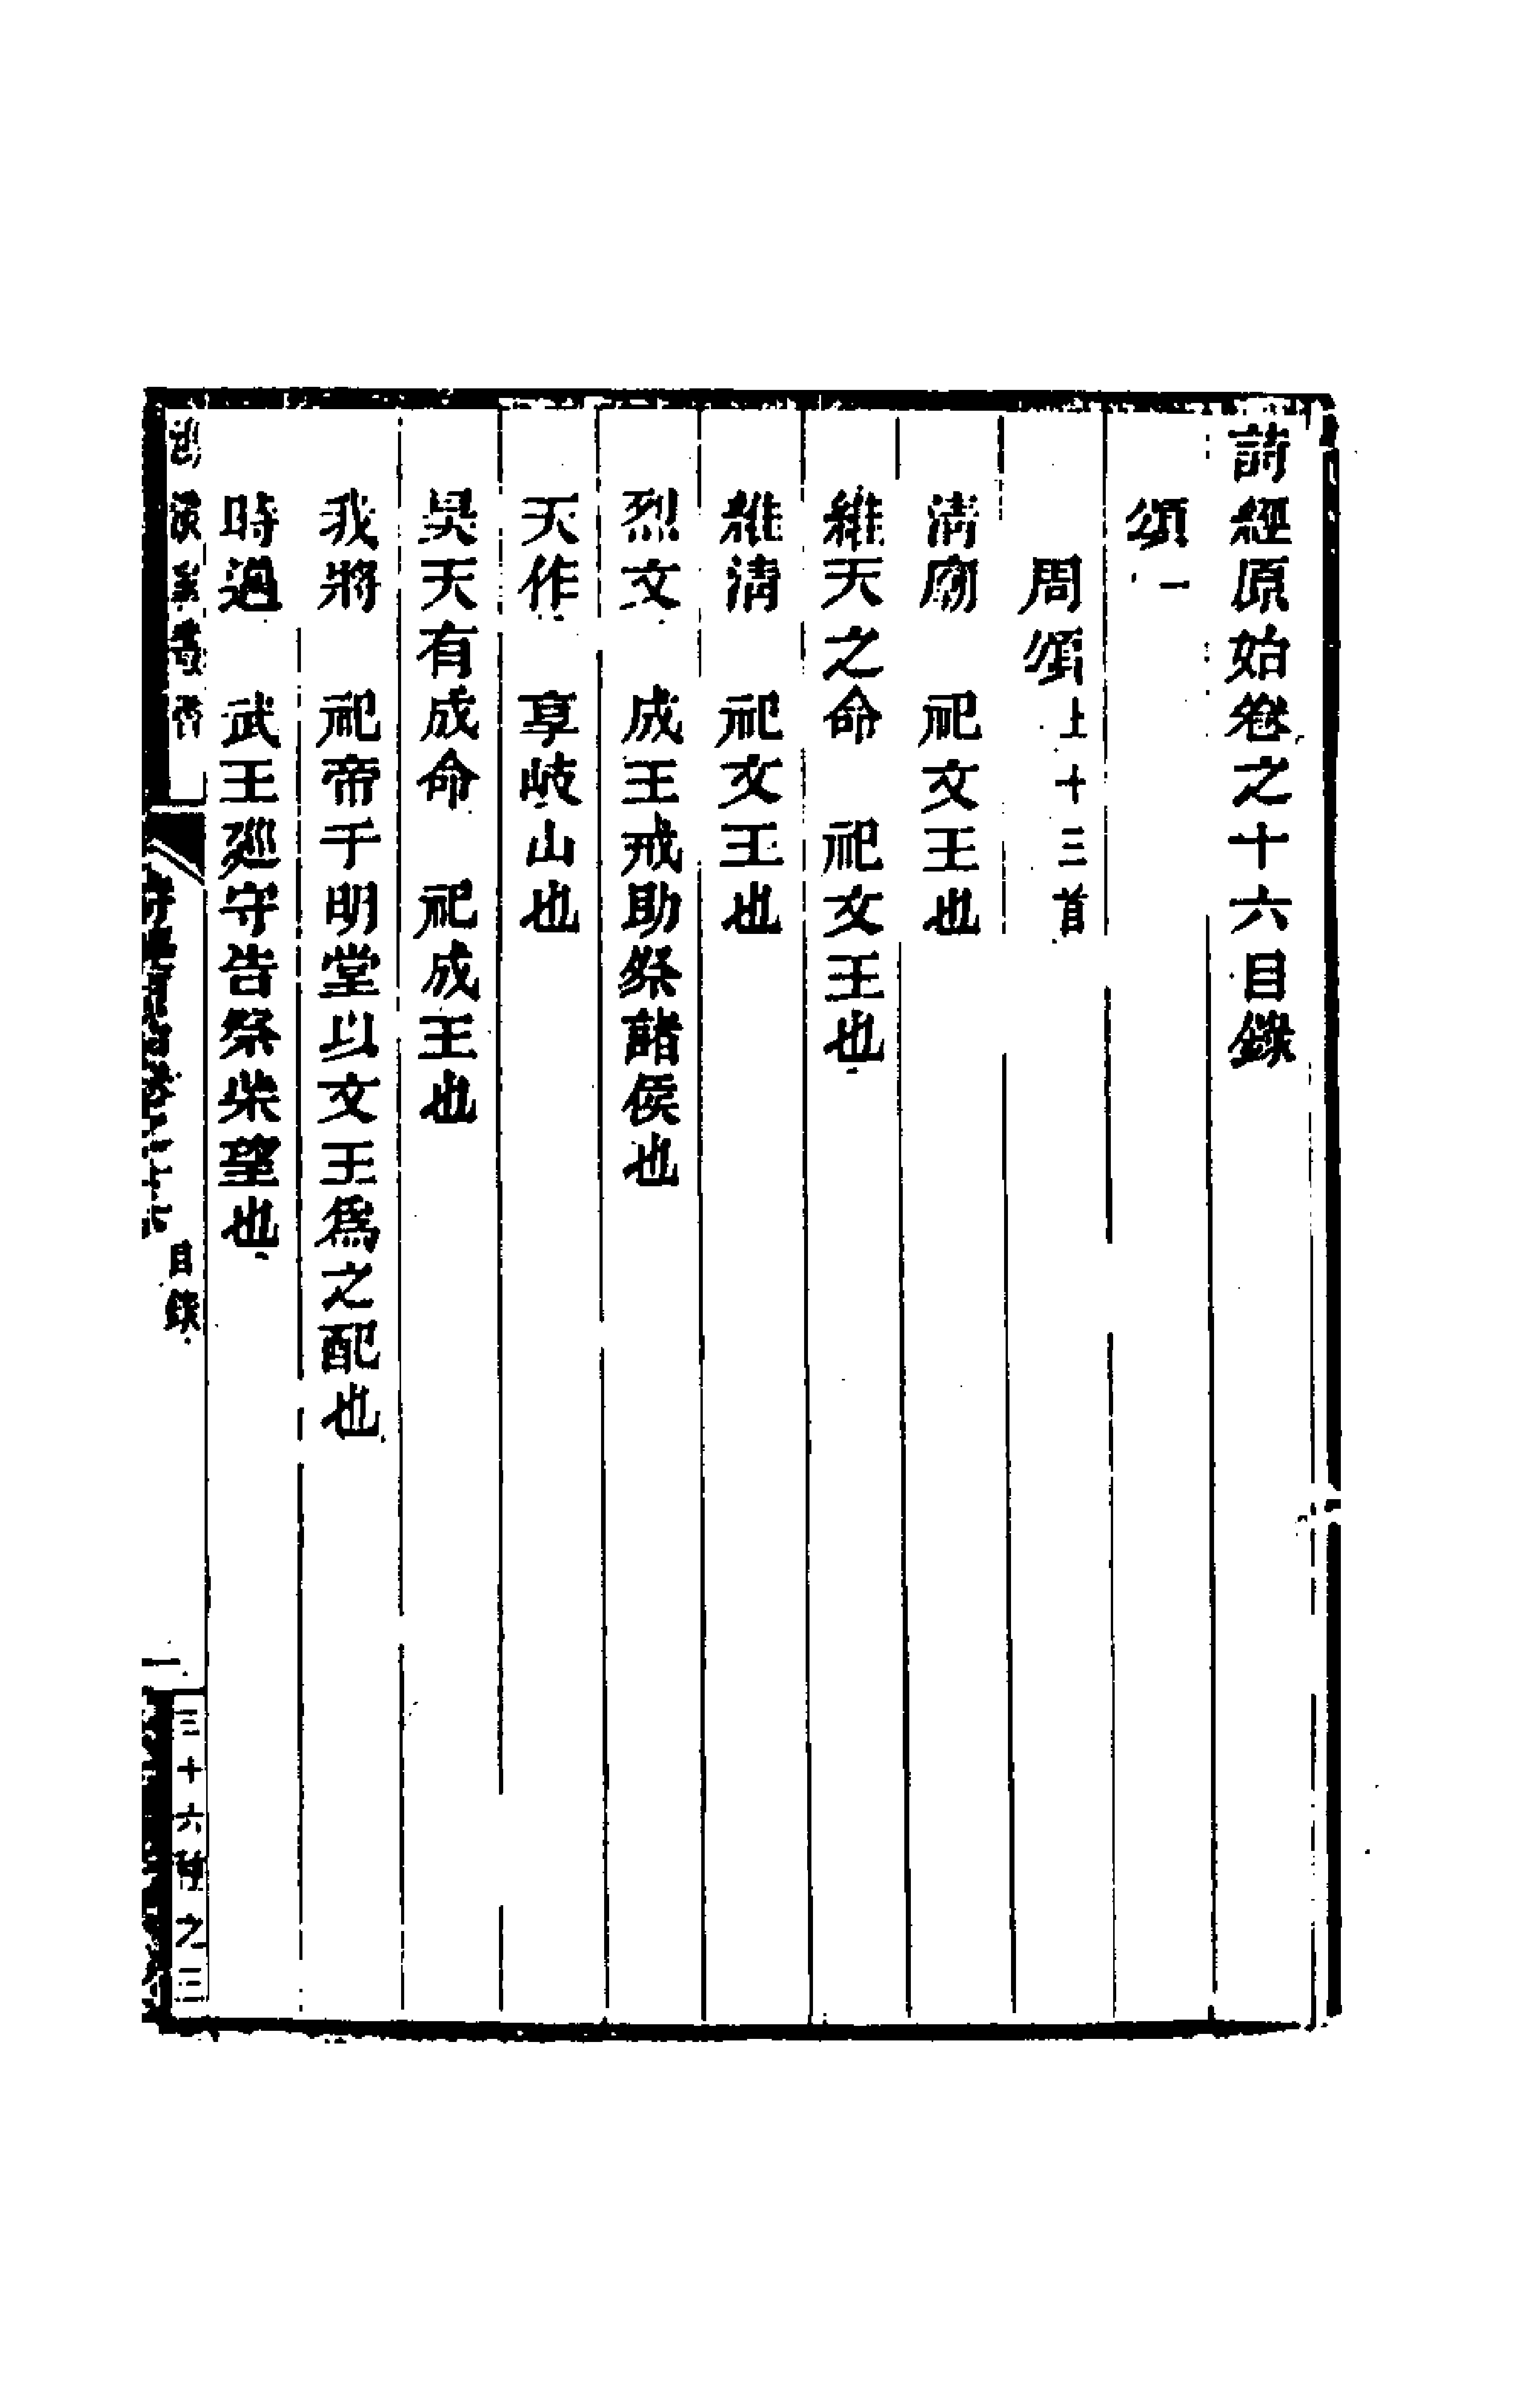 詩經原始卷之十六目錄
頌一
周頌上十三首
淸廟　祀文王也
維天之命　祀文王也
維淸　祀文王也
烈文　成王戒助祭諸侯也
天作　享岐山也
昊天有成命　祀成王也
我將　祀帝于明堂以文王爲之配也
時邁　武王廵守告祭柴望也
目錄
一
三十六種之三